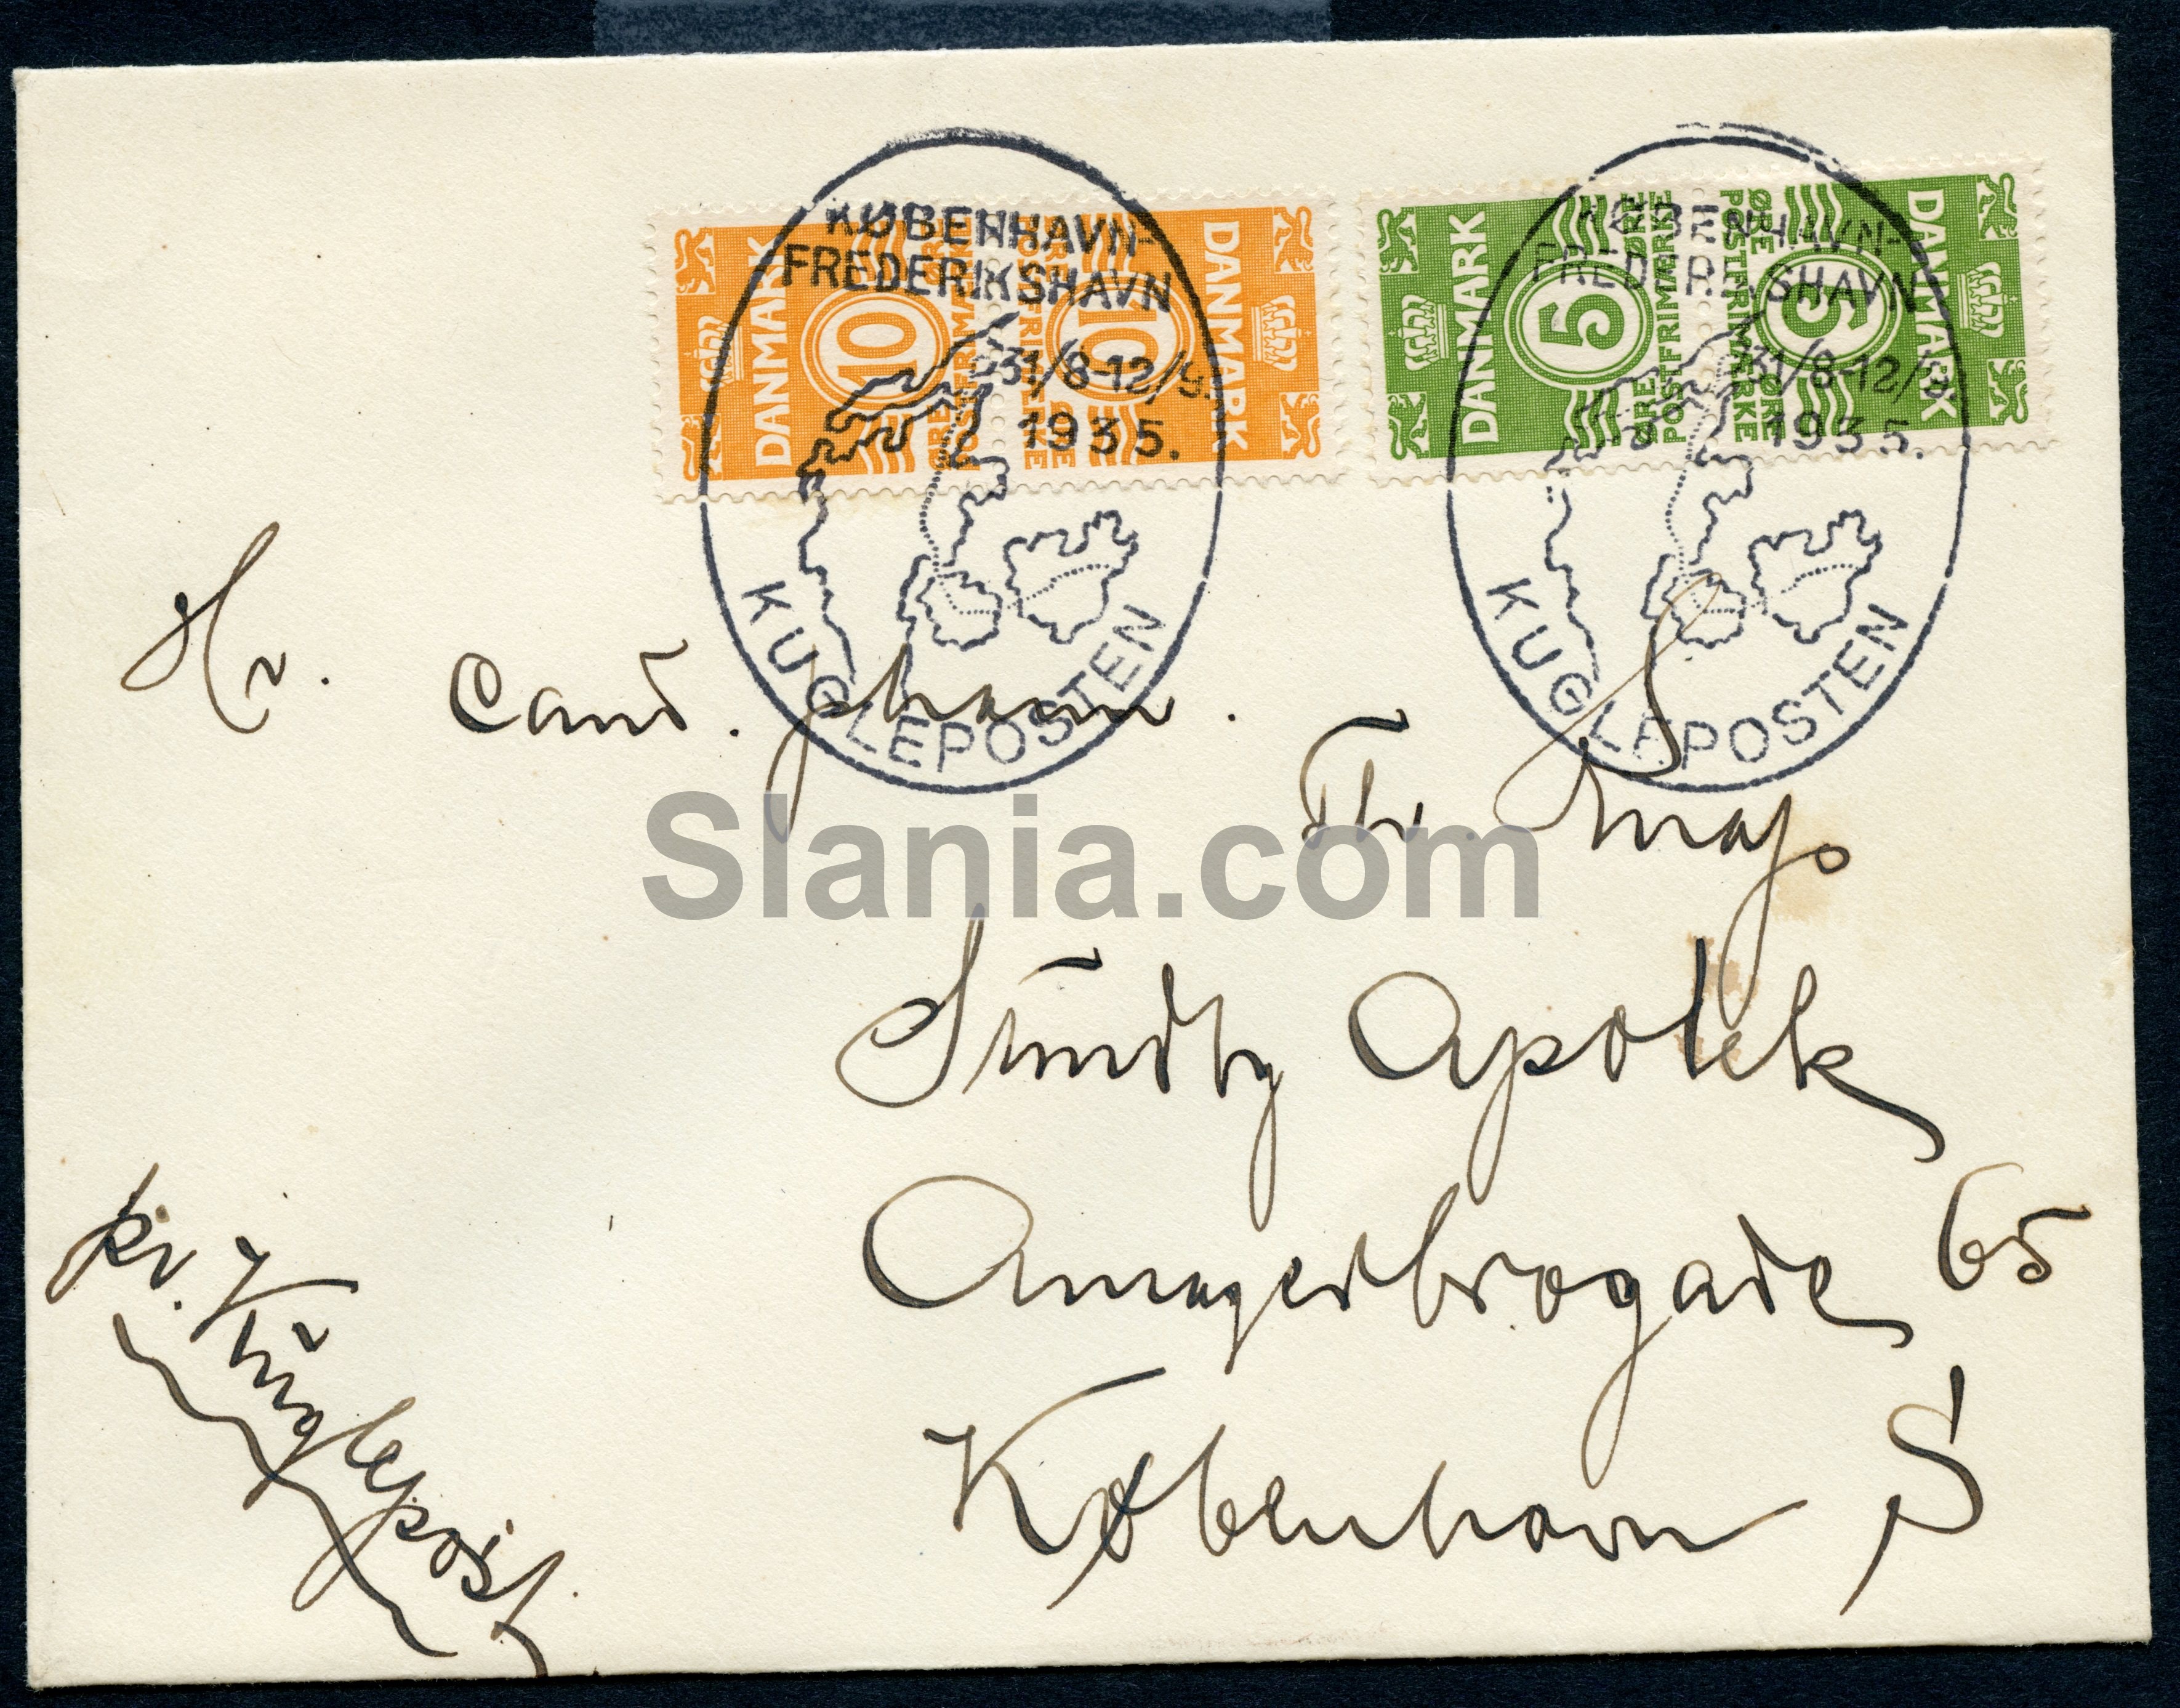 KØBENHAVN-
FREDERIKSHAVN
31/8-12/9.
1935.
KUGLEPOSTEN
KØBENHAVN-
FREDERIKSHAVN
31/8-12/9.
1935.
KUGLEPOSTEN
DANMARK
10
ØRE
POSTFRIMÆRKE
ØRE
DANMARK
10
ØRE
POSTFRIMÆRKE
ØRE
DANMARK
5
ØRE
POSTFRIMÆRKE
ØRE
DANMARK
5
ØRE
POSTFRIMÆRKE
ØRE
Hr. cand. pharm.
Th.
Slania.com
Sundby Apotek
Amagerbrogade 65
København S
pr. Kuglepost